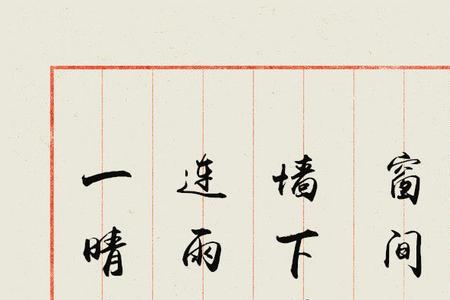 窗间
墙下
连雨
一晴